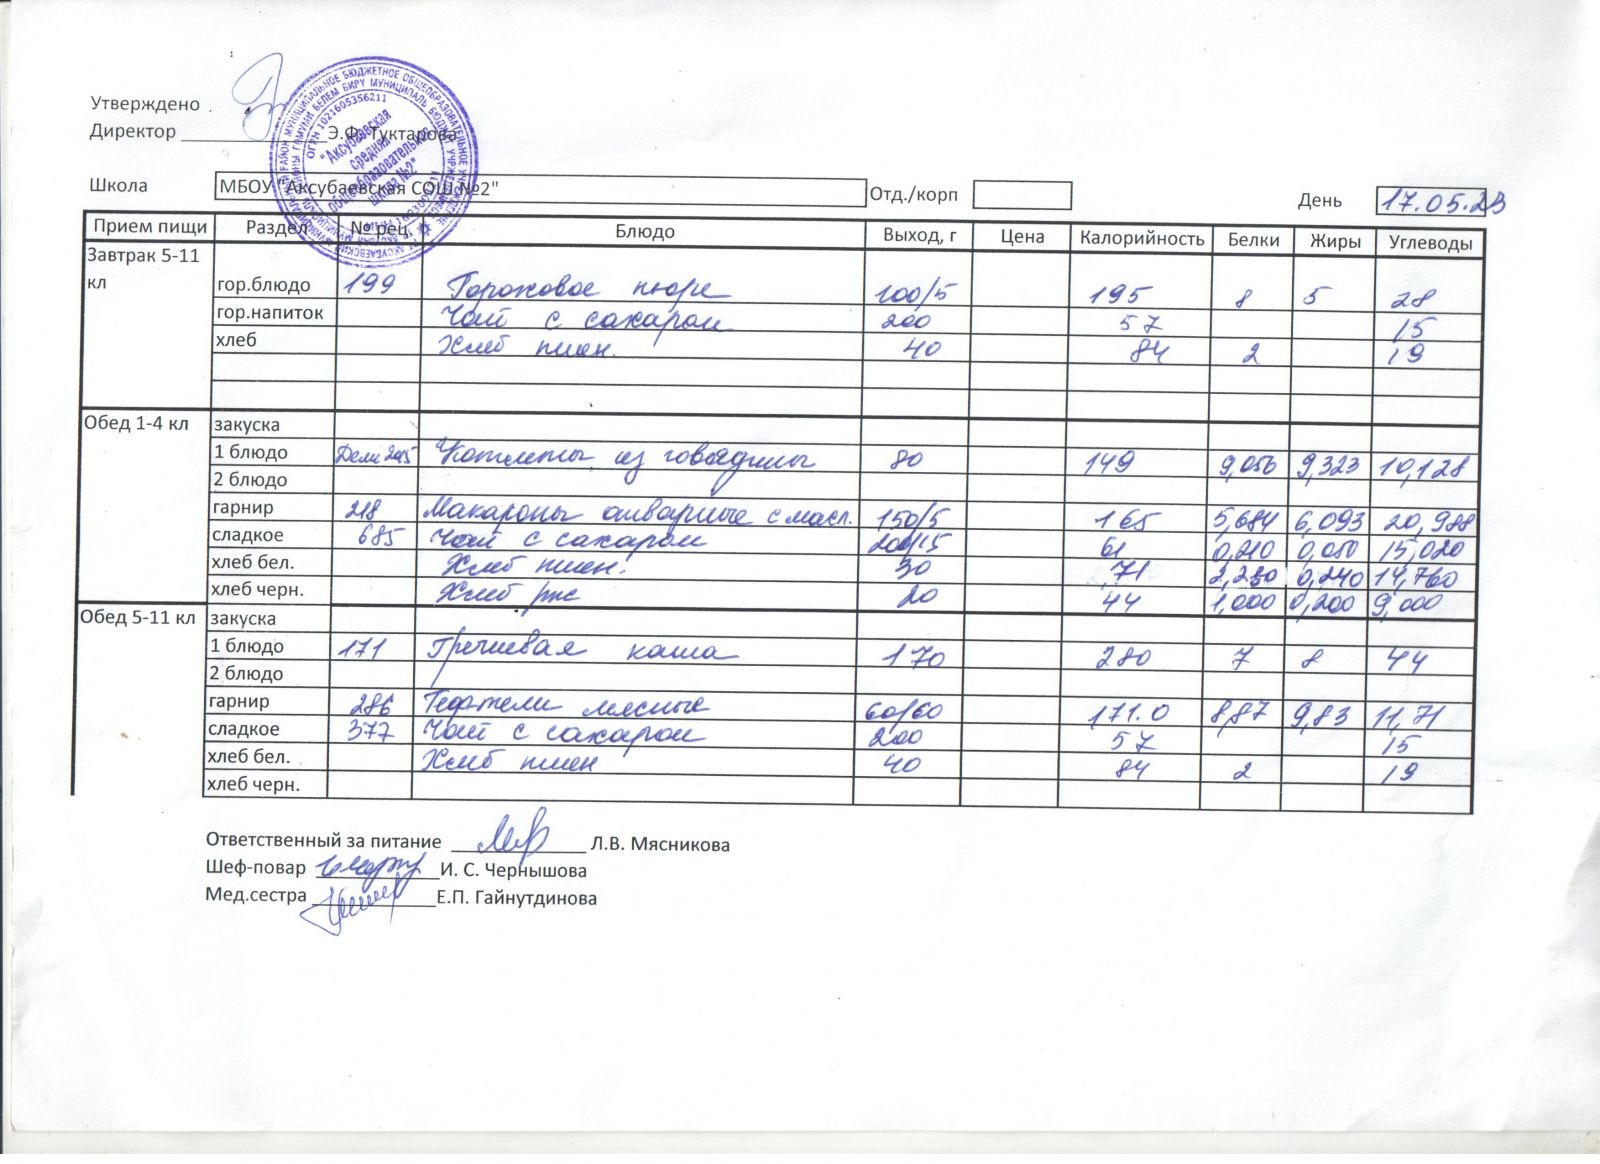 Утверждено
Директор Э.Ф. Туктарова
ОГРН 1021605356211
"Аксубаевская
средняя
общеобразовательная
школа №2"
Школа МБОУ "Аксубаевская СОШ №2" Отд./корп День 17.05.23
Прием пищи Раздел № рец. Блюдо Выход, г Цена Калорийность Белки Жиры Углеводы
Завтрак 5-11
кл гор.блюдо 199 Гороховое пюре 100/5 195 8 5 28
гор.напиток Чай с сахаром 200 57 15
хлеб Хлеб пшен. 40 84 2 19
Обед 1-4 кл закуска
1 блюдо Дели 2015 Котлеты из говядины 80 149 9,056 9,323 10,128
2 блюдо
гарнир 218 Макароны отварные с масл. 150/5 165 5,684 6,093 20,988
сладкое 685 Чай с сахаром 200/15 61 0,210 0,050 15,020
хлеб бел. Хлеб пшен. 30 71 2,280 0,240 14,760
хлеб черн. Хлеб рж 20 44 1,000 0,200 9,000
Обед 5-11 кл закуска
1 блюдо 171 Гречневая каша 170 280 7 8 44
2 блюдо
гарнир 286 Тефтели мясные 60/60 171.0 8,87 9,83 11,71
сладкое 377 Чай с сахаром 200 57 15
хлеб бел. Хлеб пшен 40 84 2 19
хлеб черн.
Ответственный за питание Л.В. Мясникова
Шеф-повар И. С. Чернышова
Мед.сестра Е.П. Гайнутдинова